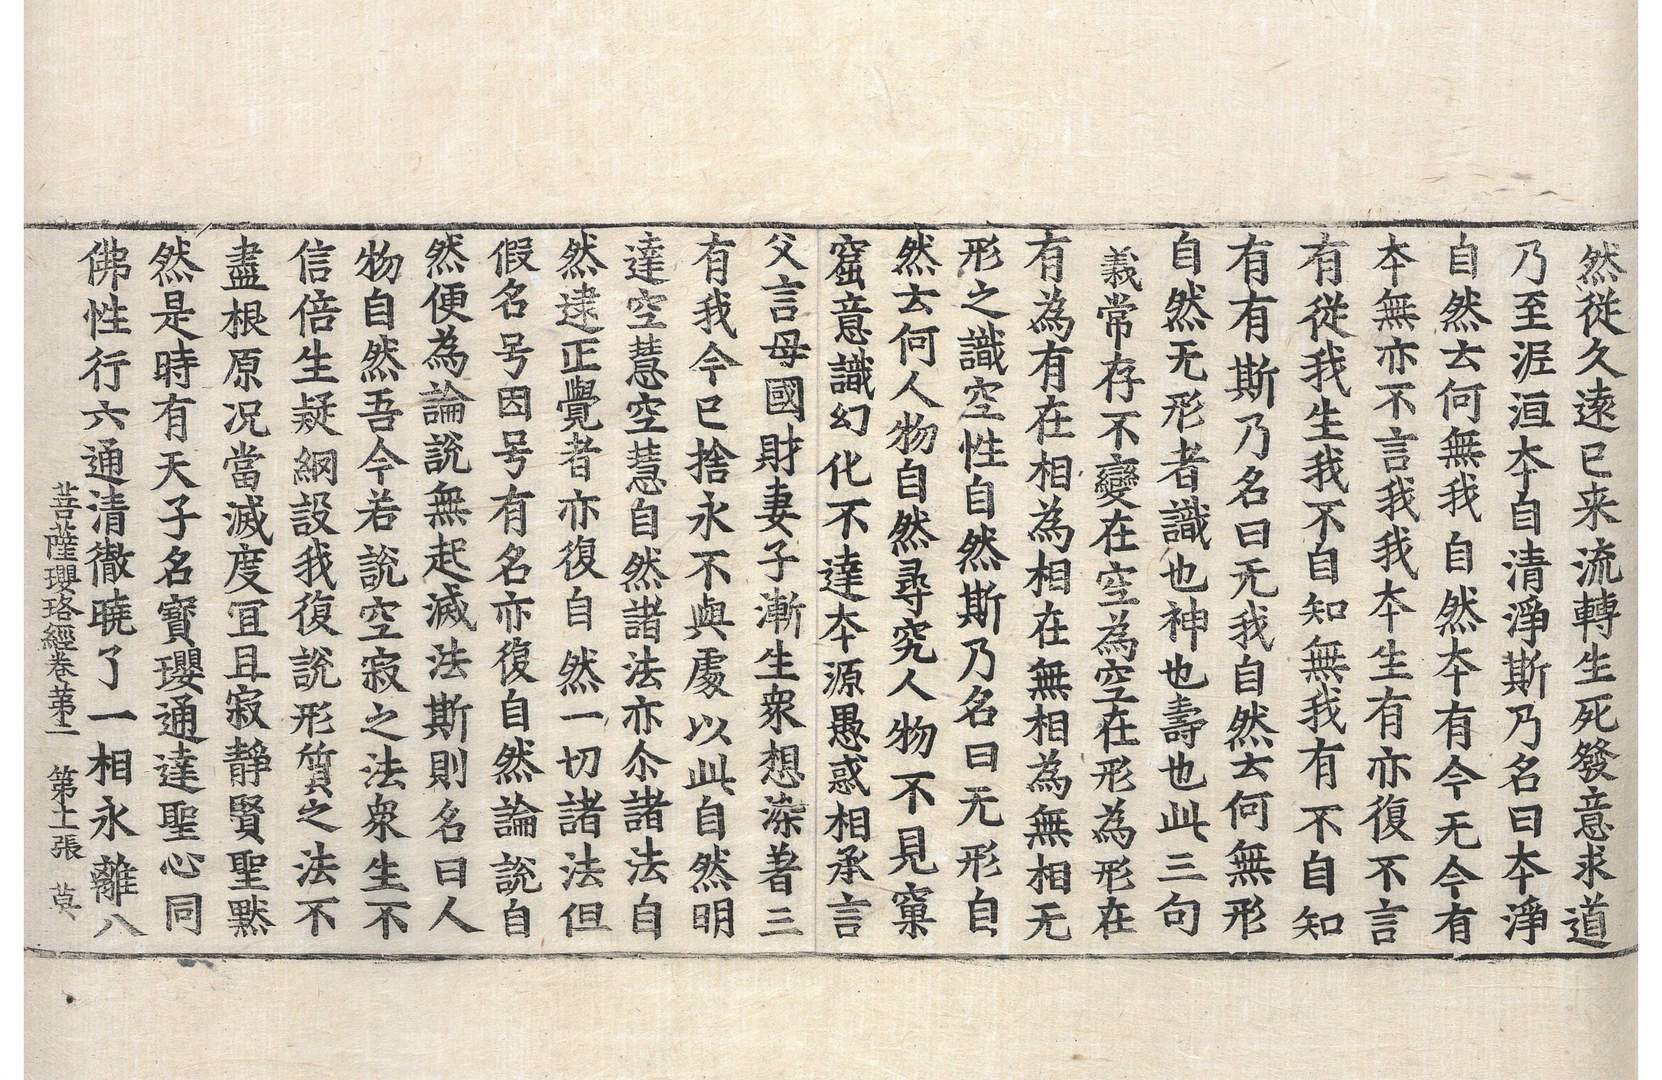 然從久遠已来流轉生死發意求道
乃至泥洹夲自清淨斯乃名曰夲淨
自然云何無我自然夲有今无今有
夲無亦不言我我夲生有亦復不言
有從我生我不自知無我有不自知
有有斯乃名曰无我自然云何無形
自然无形者識也神也壽也此三句
義常存不變在空為空在形為形在
有為有在相為相在無相為無相无
形之識空性自然斯乃名曰无形自
然云何人物自然尋究人物不見窠
窟意識幻化不達夲源愚惑相承言
父言母國財妻子漸生衆想染著三
有我今已捨永不與處以此自然明
達空慧空慧自然諸法亦尒諸法自
然逮正覺者亦復自然一切諸法但
假名号因号有名亦復自然論說自
然便為論說無起滅法斯則名曰人
物自然吾今若說空寂之法衆生不
信倍生疑網設我復說形質之法不
盡根原况當滅度宜且寂靜賢聖默
然是時有天子名寶瓔通達聖心同
佛性行六通清徹曉了一相永離八
菩薩瓔珞經卷苐十二 第十一張 莫